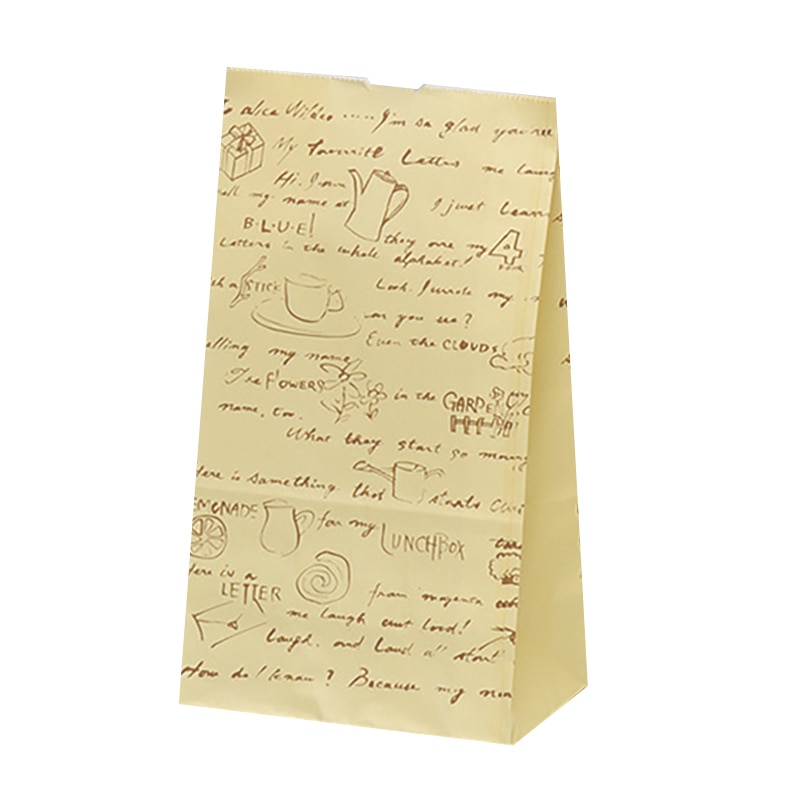 To alice Wildeo ..... I'm so glad you ree
My favourite Letters me laug
Hi, I
ell my name at I just learn
B·L·U·E!
they are my 4
Letters in the whole alphabet!
STICK Look. I wrote my
you see?
Even the CLOUDS
elling my name
The FLOWERS in the GARDEN
name, too.
What they start so
Here is something that starts
EMONADE for my LUNCHBOX
Here is a
LETTER from magenta
me laugh out loud!
Laugh, and Loud all start
How do I know? Because my